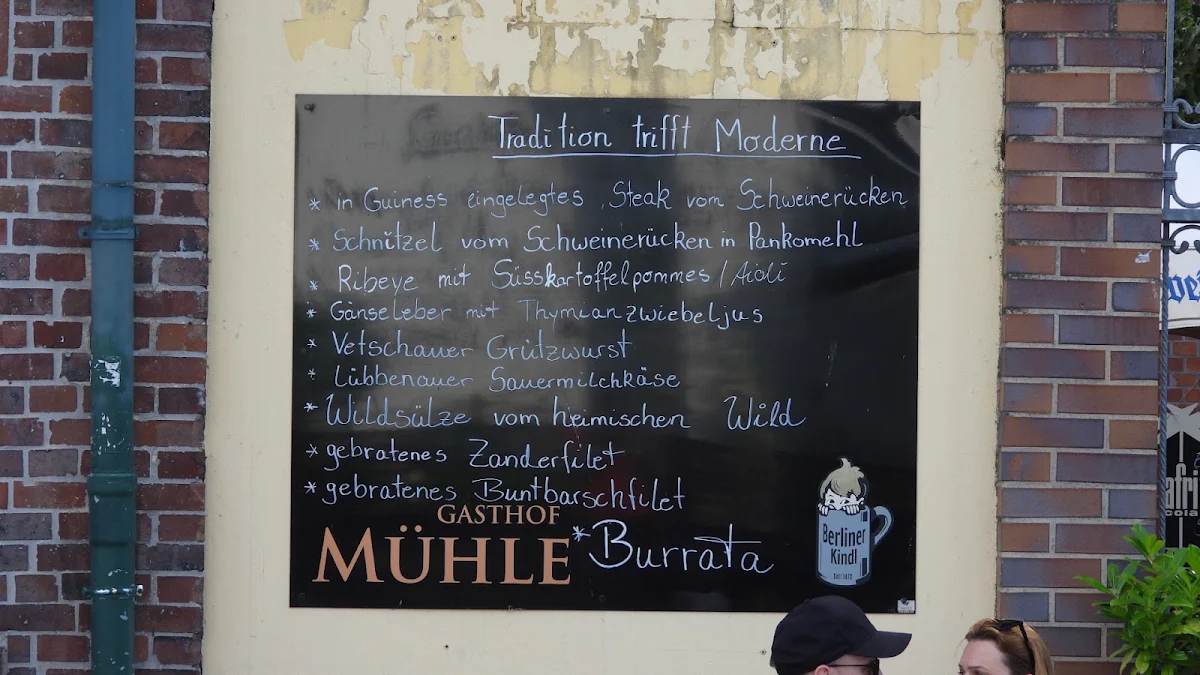 Tradition trifft Moderne
* in Guiness eingelegtes Steak vom Schweinerücken
* Schnitzel vom Schweinerücken in Pankomehl
* Ribeye mit Süsskartoffelpommes / Aioli
* Gänseleber mit Thymianzwiebeljus
* Vetschauer Grützwurst
* Lübbenauer Sauermilchkäse
* Wildsülze vom heimischen Wild
* gebratenes Zanderfilet
* gebratenes Buntbarschfilet
GASTHOF
MÜHLE
* Burrata
Berliner
Kindl
afri
cola